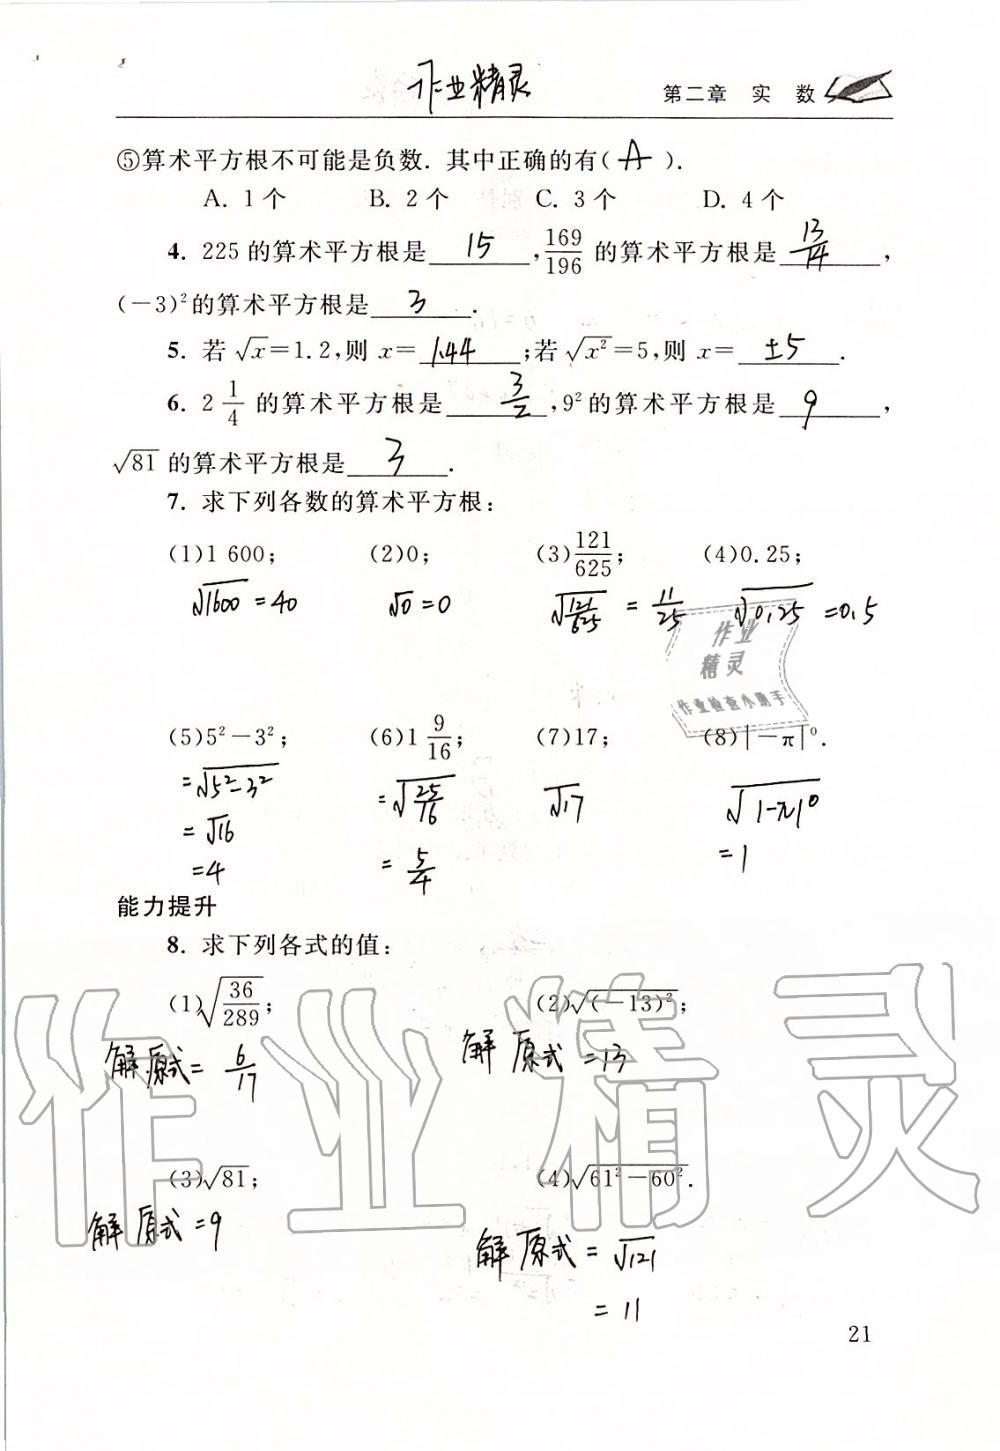 作业精灵
第二章 实 数
⑤算术平方根不可能是负数. 其中正确的有( A ).
A. 1个 B. 2个 C. 3个 D. 4个
4. 225的算术平方根是 15 , 169/196 的算术平方根是 13/14 ,
(-3)²的算术平方根是 3 .
5. 若 √x=1.2,则 x= 1.44 ;若 √x²=5,则 x= ±5 .
6. 2 1/4 的算术平方根是 3/2 ,9²的算术平方根是 9 ,
√81 的算术平方根是 3 .
7. 求下列各数的算术平方根:
(1)1 600; (2)0; (3)121/625; (4)0.25;
√1600 = 40 √0 = 0 √121/625 = 11/25 √0.25 = 0.5
作业
精灵
作业检查小助手
(5)5²-3²; (6)1 9/16; (7)17; (8)|-π|⁰.
=√5²-3² =√25/16 √17 √|-π|⁰
=√16 = 5/4 =1
=4
能力提升
8. 求下列各式的值:
(1)√36/289; (2)√(-13)²;
解 原式= 6/17 解 原式=13
(3)√81; (4)√61²-60².
解 原式=9 解 原式=√121
= 11
作业精灵
21